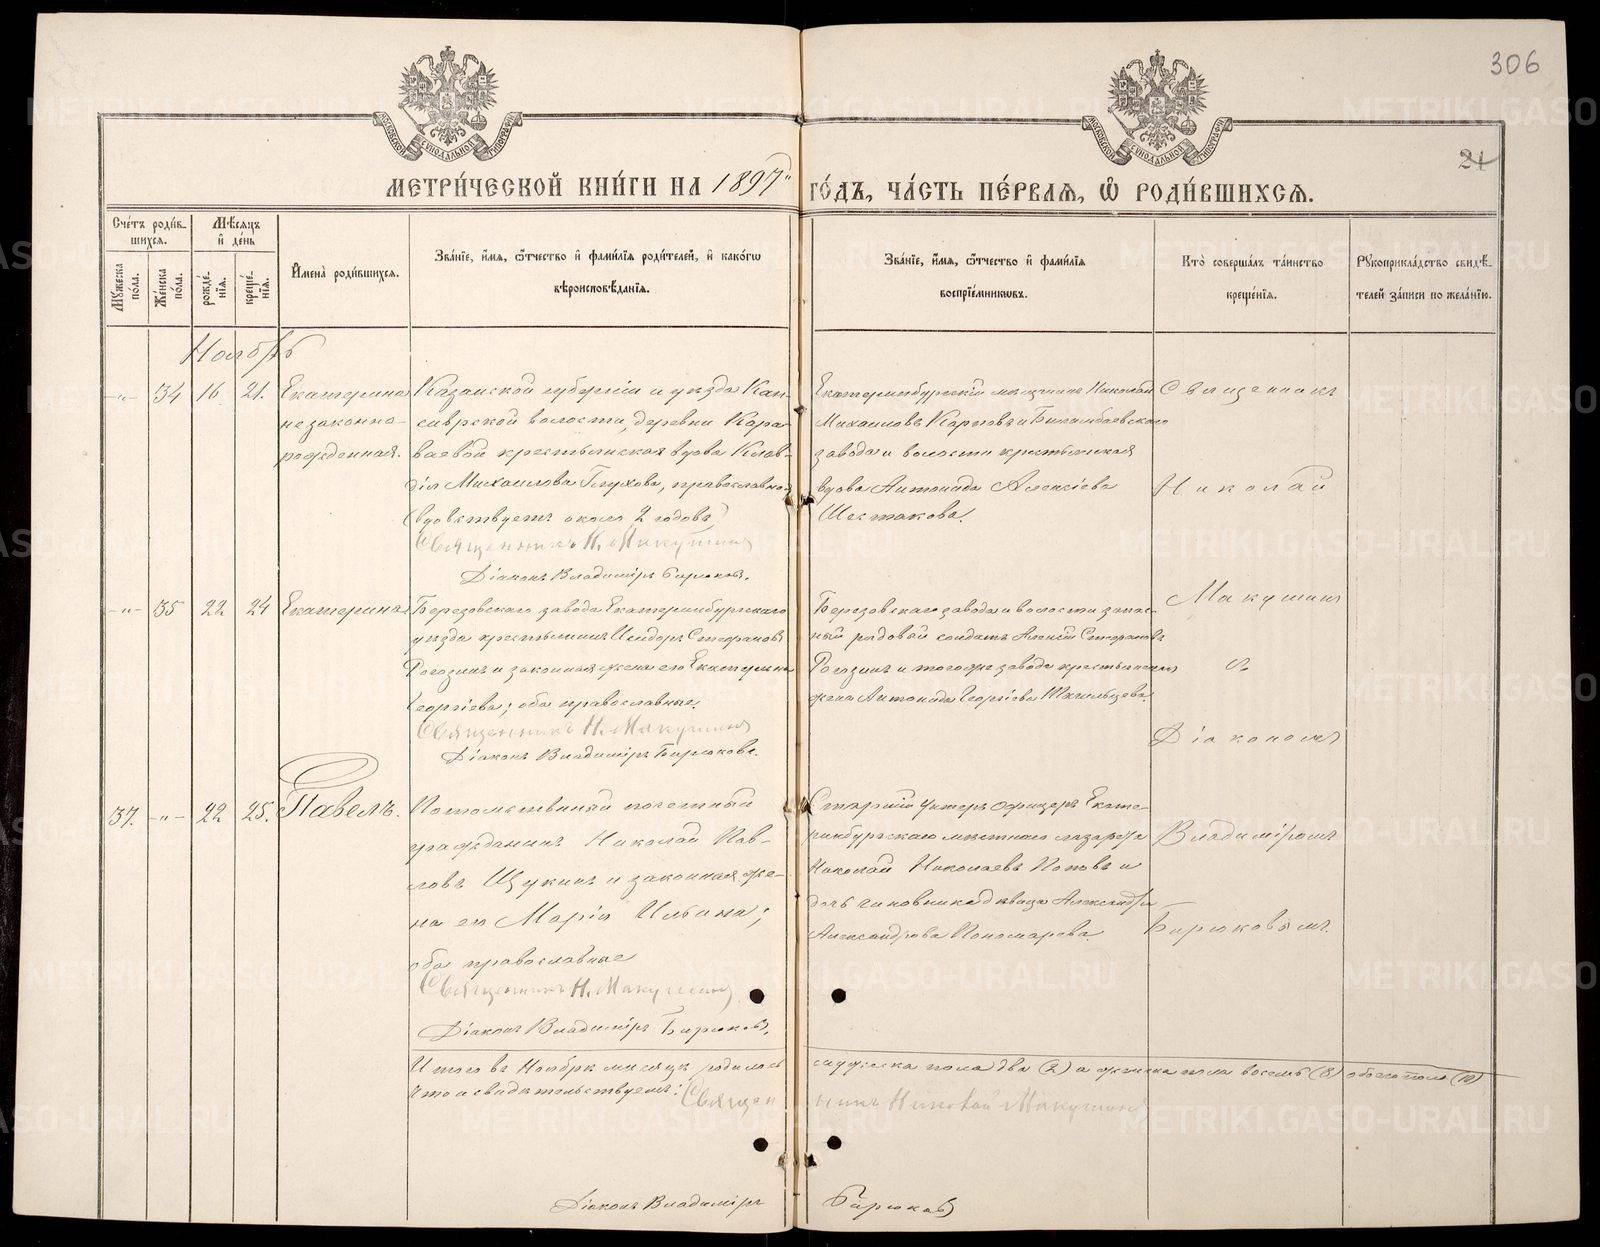 306
21
МЕТРИ́ЧЕСКОЙ КНИ́ГИ НА 1897 ГО́ДЪ, ЧА́СТЬ ПЕ́РВАЯ, Ѡ РОДИ́ВШИХСЯ.
Сче́тъ роди́в-
шихся.
Му́жеска по́ла.
Же́нска по́ла.
Мѣ́сяцъ
и҆ де́нь
рожде́-
нїя.
креще́-
нїя.
И҆мена̀ роди́вшихся.
Зва́нїе, и҆́мя, ѻ҆́тчество и҆ фами́лїя роди́телей, и҆ како́гѡ
вѣроисповѣ́данїя.
Зва́нїе, и҆́мя, ѻ҆́тчество и҆ фами́лїя
воспрїе́мниковъ.
Кто̀ соверша́лъ та́инство
креще́нїя.
Рꙋкоприкла́дство свидѣ́-
телей за́писи по жела́нїю.
Ноябрь
-"- 34 16 21. Екатерина
незаконно-
рожденная.
Казанской губерніи и уѣзда
волости, деревни Кара-
ваевой крестьянская вдова Клав-
дія Михаилова Глухова, православная
(вдовствуетъ около 2 годовъ)
Священникъ Н. Макушинъ
Діаконъ Владиміръ Бирюковъ.
Екатеринбургскій мѣщанинъ Николай
Михаиловъ Карповъ и Билимбаевскаго
завода и волости крестьянская
вдова Антонида Алексіева
Шестакова.
Священникъ
Николай
Макушинъ
съ
Діакономъ
Владиміромъ
Бирюковымъ.
-"- 35 22 24 Екатерина
Березовскаго завода Екатеринбургскаго
уѣзда крестьянинъ Исидоръ Стефановъ
Рогозинъ и законная жена его Екатерина
Георгіева; оба православные.
Священникъ Н. Макушинъ
Діаконъ Владиміръ Бирюковъ.
Березовскаго завода и волости запас-
ный рядовой солдатъ Алексій Стефановъ
Рогозинъ и тогоже завода крестьянская
жена Антонида Георгіева
37. -"- 22 25. Павелъ.
Потомственный почетный
гражданинъ Николай Пав-
ловъ Щукинъ и законная же-
на его Марія Ильина;
оба православные
Священникъ Н. Макушинъ
Діаконъ Владиміръ Бирюковъ.
Старшій Унтеръ Офицеръ Екате-
ринбургскаго мѣстнаго лазарета
Николай Николаевъ Поповъ и
дочь чиновника дѣвица Александра
Александрова Пономарева.
Итого въ Ноябрѣ мѣсяцѣ родилось мужеска пола два (2) а женска пола восемь (8) обоего пола (10)
Что и свидѣтельствуемъ: Священникъ Николай Макушинъ
Діаконъ Владиміръ Бирюковъ
METRIKI.GASO-URAL.RU